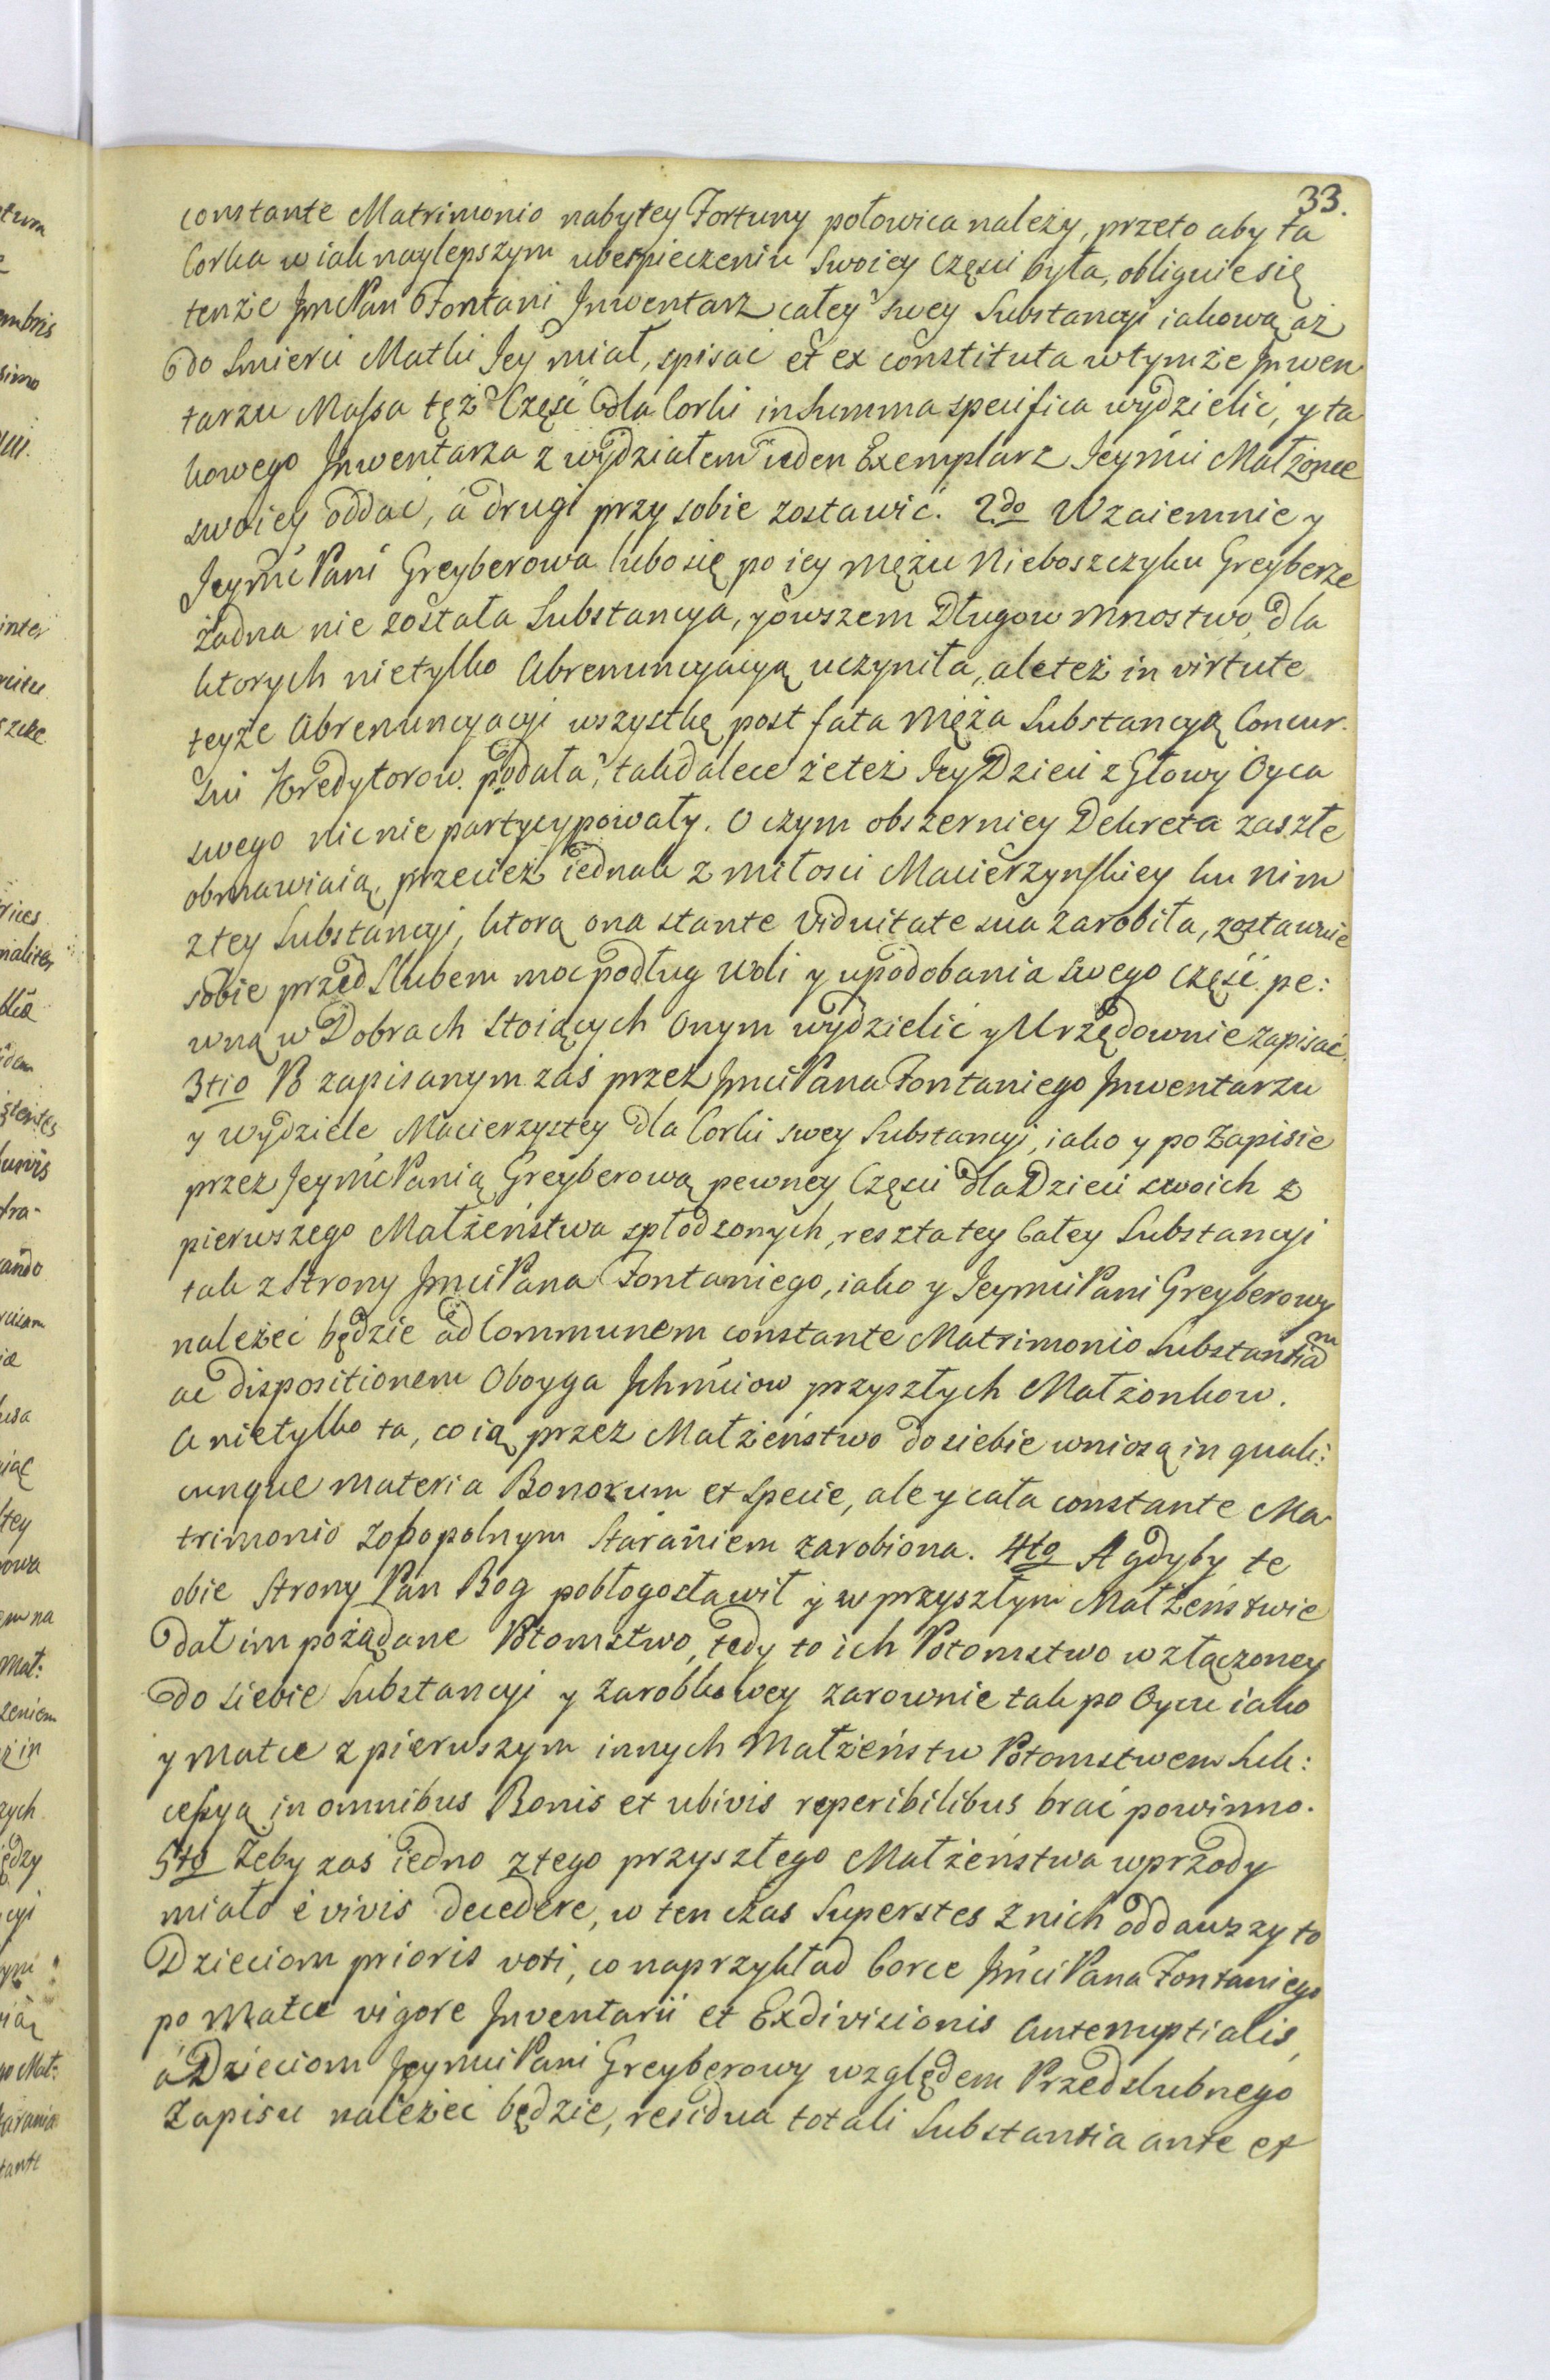 33.
constante Matrimonio nabytey Fortuny połowica należy, przeto aby ta
Corka w iak naylepszym ubespieczeniu Swoiey Częsci była, obliguie się
tenże JmcPan Fontani Jnwentarz całey swey Substancyi iakową aż
do Smierci Matki Jey miał, spisać et ex constituta w tymże Jnwen
tarzu Massa też Część dla Corki in Summa specifica wydzielić, y ta
kowego Jnwentarza z wydziałem ieden Exemplarz Jeymci Małżonce
swoiey oddać, á drugi przy sobie zostawić. 2do Wzaiemnie y
JeymćPani Greyberowa lubo się po iey mężu Nieboszczyku Greyberze
żadna nie została Substancya, y owszem Długow mnostwo, dla
ktorych nietylko Abrenuncyacyą uczyniła, ale też in virtute
teyże Abrenuncyacyi wszystkę post fata męża Substancyą Concur-
sui Kredytorow podała, tak dalece że też Jey Dzieci z Głowy Oyca
swego nic nie partycypowały. O czym obszerniey Dekreta zaszłe
obmawiaią, przecież iednak z miłosci Macierzynskiey ku nim
z tey Substancyi, ktorą ona stante Viduitate sua zarobiła, zostawuie
sobie przed Slubem moc podług woli y upodobania swego część pe:
wną w Dobrach Stoiących Onym wydzielić y Urzędownie zapisać.
3tio Po zapisanym zaś przez JmciPana Fontaniego Jnwentarzu
y wydziele Macierzystey dla Corki swey Substancyi, iako y po Zapisie
przez JeymćPanią Greyberową pewney Częsci dla Dzieci swoich z
pierwszego Małżeństwa spłodzonych, reszta tey Całey Substancyi
tak z Strony JmciPana Fontaniego, iako y JeymciPani Greyberowy
należeć będzie ad Communem constante Matrimonio Substantiam
ac dispositionem Oboyga Jchmćiow przyszłych Małżonkow.
A nietylko ta, co ią przez Małżeństwo do siebie wniosą in quali:
cunque materia Bonorum et Specie, ale y cała constante Ma
trimonio Zobopolnym Staraniem zarobiona. 4to A gdyby te
obie Strony Pan Bog pobłogosławił y w przyszłym Małżeństwie
dał im pożądane Potomstwo, tedy to ich Potomstwo w złączoney
do siebie Substancyi y zarobkowey zarownie tak po Oycu iako
y Matce z pierwszym innych Małżeństw Potomstwem Suk:
cessyą in omnibus Bonis et ubivis reperibilibus brać powinno.
5to Żeby zaś iedno z tego przyszłego Małżeństwa wprzody
miało é vivis decedere, w ten czas Superstes z nich oddawszy to
Dzieciom prioris voti, co naprzykład Corce JmćiPana Fontaniego
po Matce vigore Jnventarii et Exdivisionis Antenuptialis,
á Dzieciom JeymciPani Greyberowy względem Przedslubnego
Zapisu należeć będzie, residua totali Substantia ante et